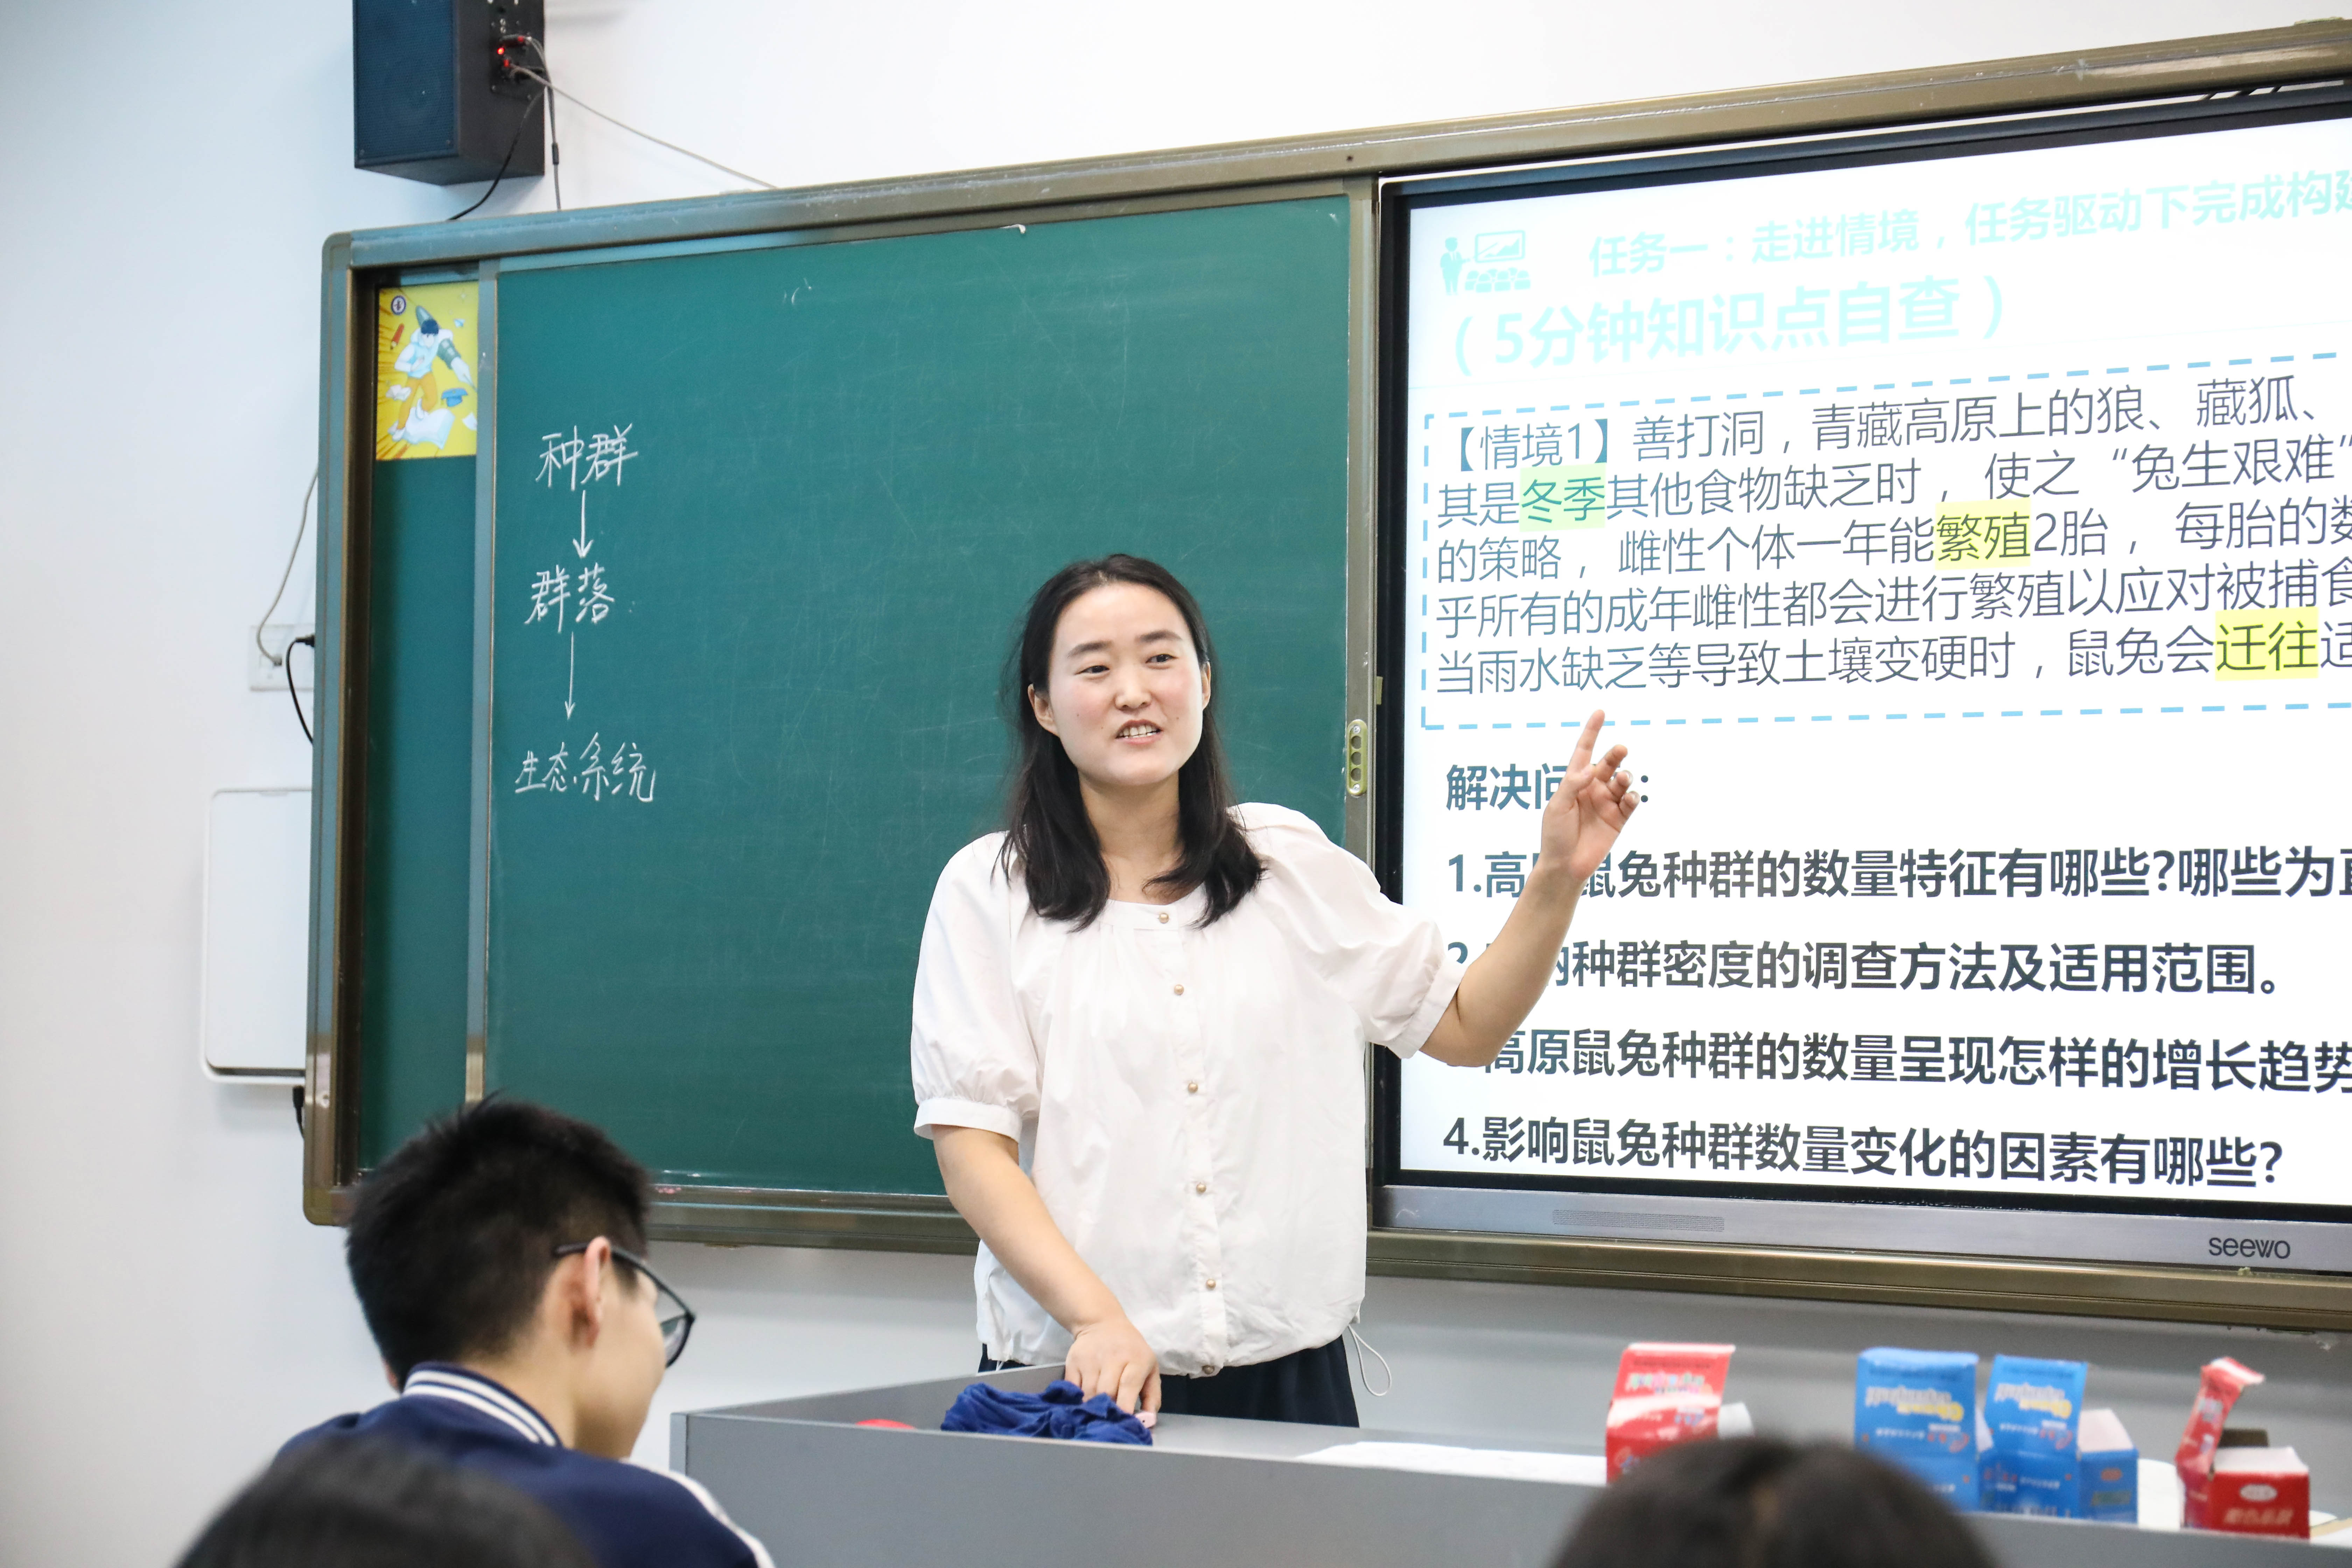 种群
↓
群落
↓
生态系统
任务一：走进情境，任务驱动下完成构建
（5分钟知识点自查）
【情境1】善打洞，青藏高原上的狼、藏狐、
其是冬季其他食物缺乏时， 使之“兔生艰难”
的策略， 雌性个体一年能繁殖2胎， 每胎的数
乎所有的成年雌性都会进行繁殖以应对被捕食
当雨水缺乏等导致土壤变硬时，鼠兔会迁往适
解决问 ：
1.高 鼠兔种群的数量特征有哪些?哪些为直
2. 种群密度的调查方法及适用范围。
高原鼠兔种群的数量呈现怎样的增长趋势
4.影响鼠兔种群数量变化的因素有哪些?
seewo